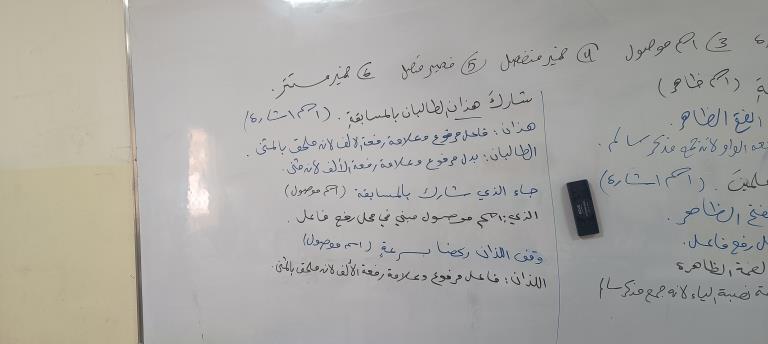 3) اسم موصول 4) ضمير منفصل 5) ضمير متصل 6) ضمير مستتر.
(اسم ظاهر)
شارك هذان الطالبان بالمسابقة. (اسم اشارة)
هذان: فاعل مرفوع وعلامة رفعة الألف لانه ملحق بالمثنى.
الطالبان: بدل مرفوع وعلامة رفعة الألف لانه مثنى.
جاء الذي شارك بالمسابقة (اسم موصول)
الذي: اسم موصول مبني في محل رفع فاعل.
وقف اللذان ركضا بسرعةٍ (اسم موصول)
اللذان: فاعل مرفوع وعلامة رفعة الألف لانه ملحق بالمثنى.
الفتح الظاهر.
الواو لانه جمع مذكر سالم.
(اسم اشارة)
الظاهر.
رفع فاعل.
الظاهرة
نصبة الياء لانه جمع مذكر سالم